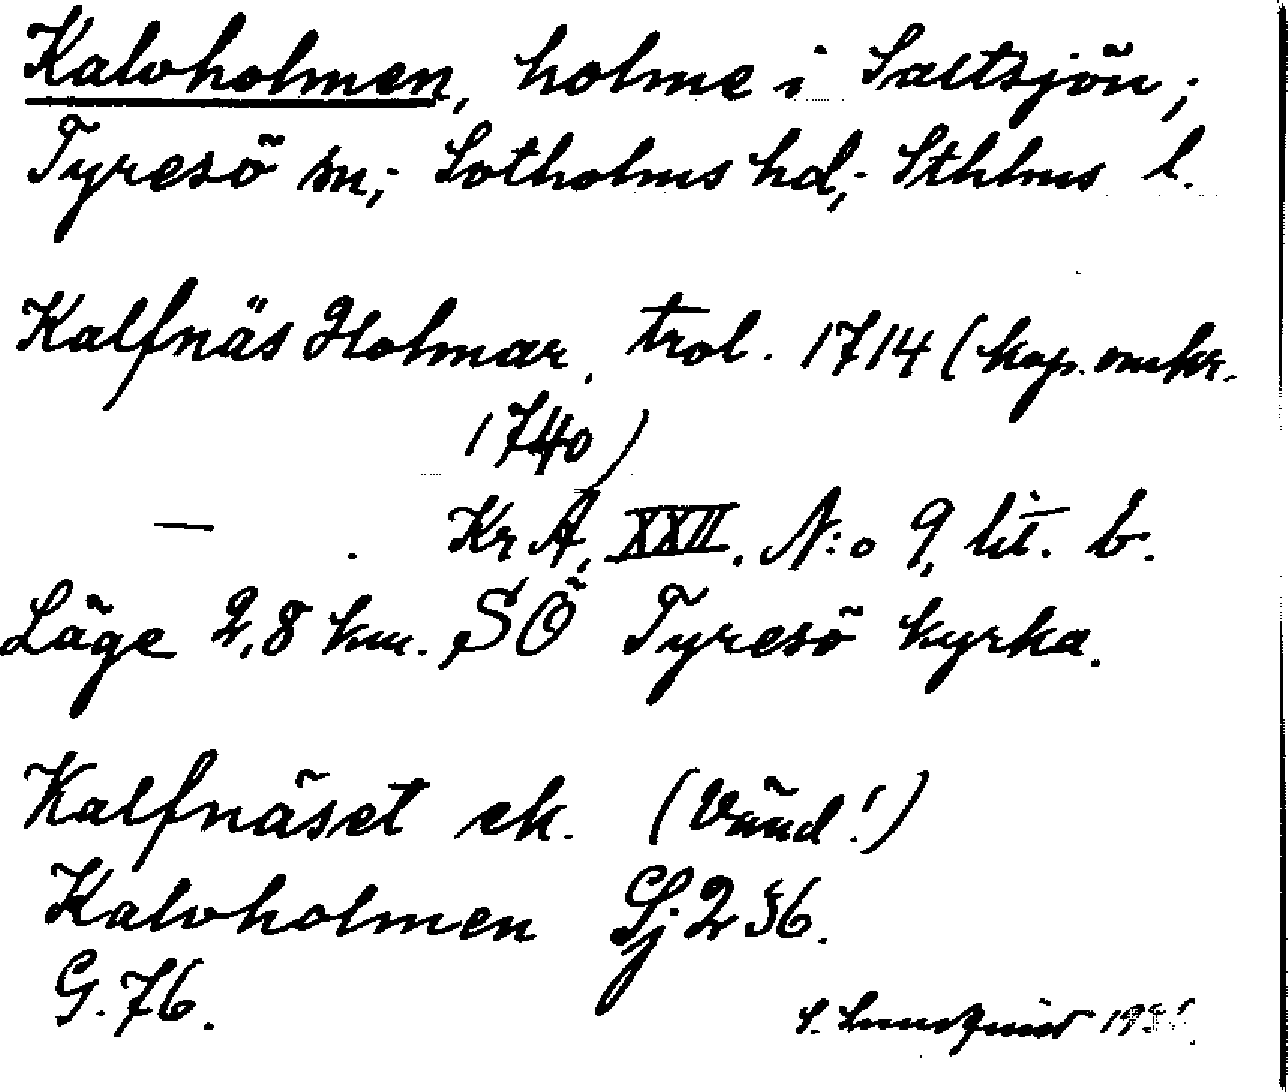 Kalvholmen, holme i Saltsjön;
Tyresö sn; Sotholms hd; Sthlms l.
Kalfnäs Holmar, trol. 1714 (kop. omkr.
1740)
— . KrA, XXII. N:o 9, lit. b.
Läge 2,8 km. SÖ Tyresö kyrka.
Kalfnäset ek. (Vänd!)
Kalvholmen Sj 236.
G. 76.
S. Lundqvist